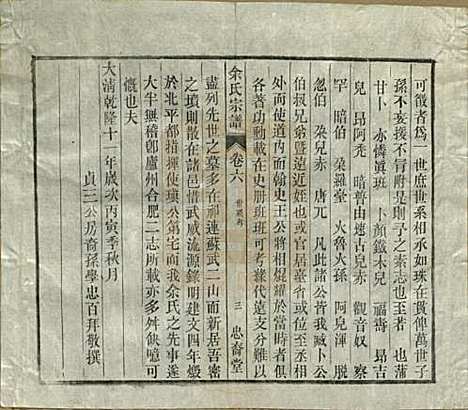 可徵者爲一世庶世系相承如珠在貫俾萬世子
孫不妄援不附會是則予之素志也 蒲
甘卜 亦憐眞班 卜顏鐵木兒 福壽 昂吉
兒 昂阿禿 暗普由速古兒赤 觀音奴 察
罕 暗伯 朵羅臺 火魯火孫 阿兒渾 脫
忽伯 朵兒赤 唐兀 凡此諸公皆我臧卜公
伯叔兄弟曁遠近姪也或官居臺省或位至丞相
處而使道内而翰史王公將相焜耀於當時者各
各著功勳載在史册班班可考蘇代遠支分難以
余氏宗譜 卷六 三 忠裔堂
盡列先世之墓多在神連蘇武二山而新居吾密
之墳則散在諸邑惜武威流源録明建文四年燬
於北平都指揮使瑱公第宅而我余氏之先事遂
大半無稽卽廬州合肥二志所載亦多舛飲噫可
慨也夫
大淸乾隆十一年歲次丙寅季秋月
貞三公房裔孫學忠百拜敬撰